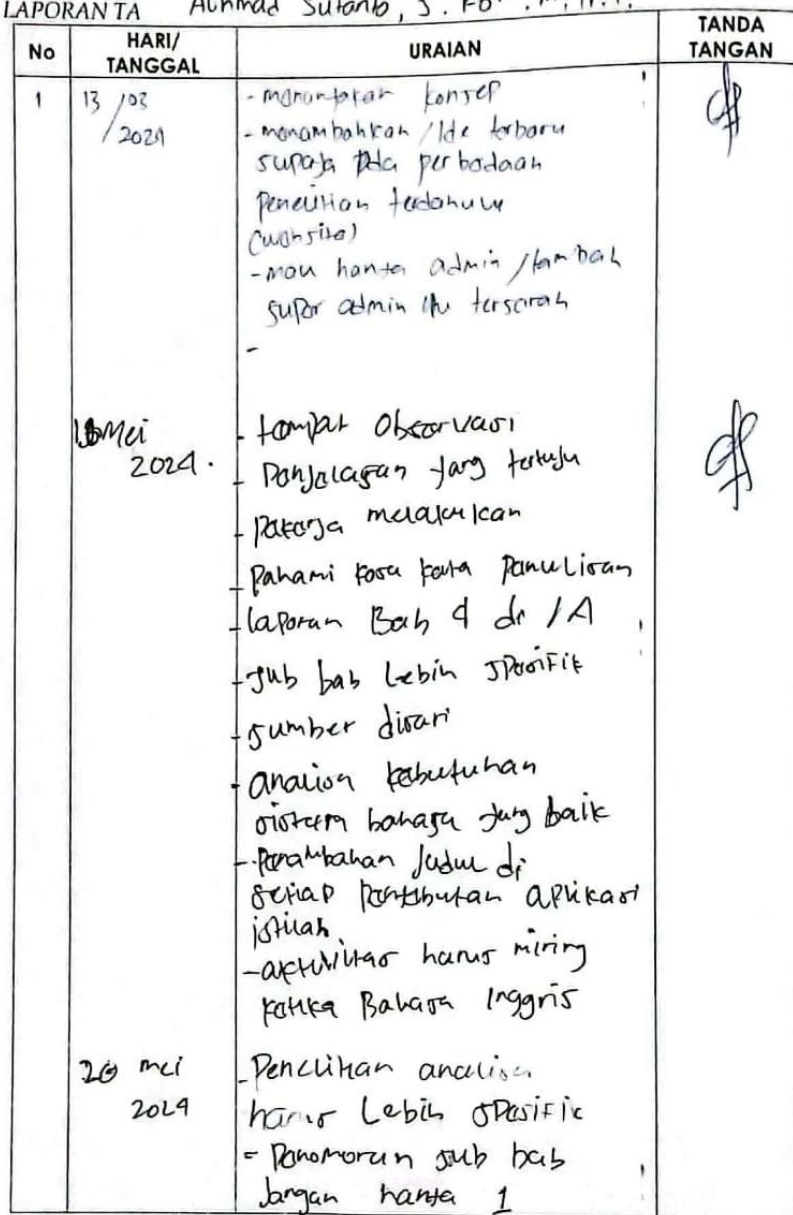 LAPORAN TA Achmad Sutanto, S. Ko
No HARI/ TANGGAL URAIAN TANDA TANGAN
1 13 /03 /2024 - konsep
- menambahkan /Ide terbaru
supaya ada perbedaan
penelitian terdahulu
- mau hanya admin /tambah
super admin itu terserah
-
Mei 2024. - tempat observasi
- Penjelasan yang tertuju
- melakukan
- Pahami kosa kata Penulisan
- laporan Bab 4 di /A
- sub bab Lebih spesifik
- sumber dicari
- analisa kebutuhan
sistem bahasa yang baik
- Penambahan Judul di
setiap penyebutan aplikasi
istilah
- aktivitas harus miring
ketika Bahasa Inggris
20 mei 2024 - Penelitian analisa
harus Lebih spesifik
- Penomoran sub bab
Jangan hanya 1